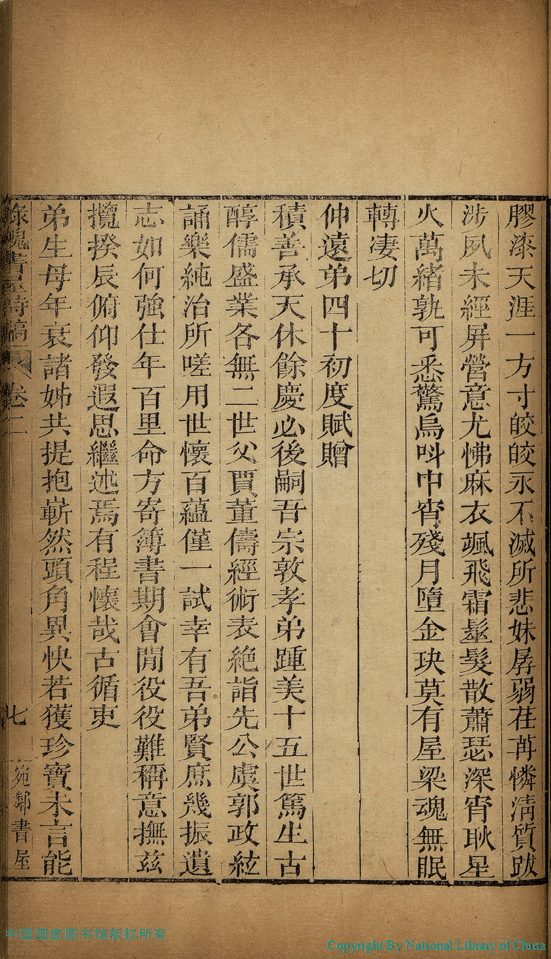 膠漆天涯一方寸皎皎永不滅所悲妹孱弱荏苒憐淸質跋
涉夙未經屏營意尤怫麻衣颯飛霜鬉髮散蕭瑟深宵耿星
火萬緒孰可悉驚烏呌中宵殘月墮金玦莫有屋梁魂無眠
轉凄切
仲遠弟四十初度賦贈
積善承天休餘慶必後嗣吾宗敦孝弟踵美十五世篤生古
醇儒盛業各無二世父賈董儔經術表絶詣先公虞郭政絃
誦樂純治所嗟用世懷百蘊僅一試幸有吾弟賢庶幾振遺
志如何強仕年百里命方寄簿書期會閒役役難稱意撫玆
攬揆辰俯仰發遐思繼述焉有程懷哉古循吏
弟生母年衰諸姊共提抱嶄然頭角異快若獲珍寶未言能
綠槐書屋詩稿 卷二 七 宛鄰書屋
中国国家图书馆版权所有
Copyright By National Library of China